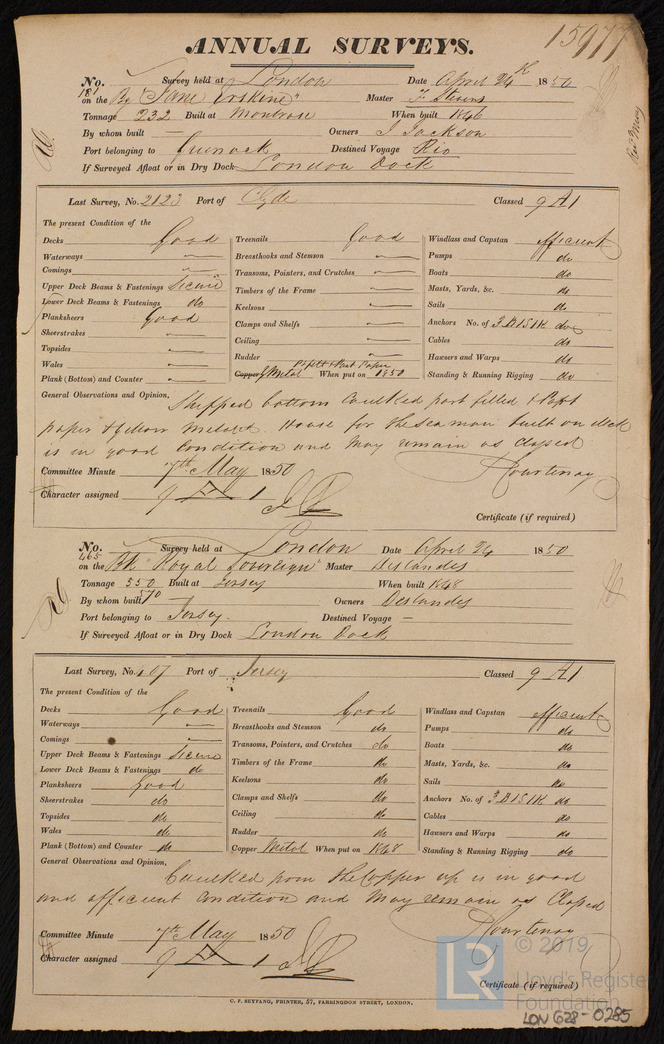 15977
ANNUAL SURVEYS.
No. 181 Survey held at London Date April 24th 1850
on the Bg "Jane Erskine" Master F Stevens
Tonnage 232 Built at Montrose When built 1846
By whom built — Owners J Jackson
Port belonging to Greenock Destined Voyage Rio
If Surveyed Afloat or in Dry Dock London Dock
Last Survey, No. 2123 Port of Clyde Classed 9 A1
The present Condition of the
Decks Good
Waterways
Comings
Upper Deck Beams & Fastenings Secure
Lower Deck Beams & Fastenings do
Planksheers Good
Sheerstrakes
Topsides
Wales
Plank (Bottom) and Counter
Treenails Good
Breasthooks and Stemson
Transoms, Pointers, and Crutches
Timbers of the Frame
Keelsons
Clamps and Shelfs
Ceiling
Rudder
Copper Y Metal When put on 1850
Windlass and Capstan efficient
Pumps do
Boats do
Masts, Yards, &c. do
Sails do
Anchors No. of 3 B 1 S 1 K do
Cables do
Hawsers and Warps do
Standing & Running Rigging do
General Observations and Opinion, Stripped bottom Caulked part filled &
paper & Yellow Metaled. House for the seaman built on deck
is in good Condition and May remain as Classed
Courtenay
Committee Minute 7th May 1850
Character assigned 9 A 1
Certificate (if required)
No. 465 Survey held at London Date April 24 1850
on the Bk "Royal Sovereign" Master Deslandes
Tonnage 350 Built at Jersey When built 1848
570
By whom built Owners Deslandes
Port belonging to Jersey. Destined Voyage —
If Surveyed Afloat or in Dry Dock London Dock
Last Survey, No. 107 Port of Jersey Classed 9 A1
The present Condition of the
Decks Good
Waterways
Comings
Upper Deck Beams & Fastenings Secure
Lower Deck Beams & Fastenings do
Planksheers Good
Sheerstrakes do
Topsides do
Wales do
Plank (Bottom) and Counter do
Treenails Good
Breasthooks and Stemson do
Transoms, Pointers, and Crutches do
Timbers of the Frame do
Keelsons do
Clamps and Shelfs do
Ceiling do
Rudder do
Copper Metal When put on 1848
Windlass and Capstan efficient
Pumps do
Boats do
Masts, Yards, &c. do
Sails do
Anchors No. of 3 B 1 S 1 K do
Cables do
Hawsers and Warps do
Standing & Running Rigging do
General Observations and Opinion,
Caulked from the Copper up is in good
and efficient Condition and May remain as Classed
Courtenay
Committee Minute 7th May 1850
Character assigned 9 A 1
Certificate (if required)
C. F. SEYFANG, PRINTER, 57, FARRINGDON STREET, LONDON.
© 2019
LR Lloyd's Register
Foundation
LON 628-0285